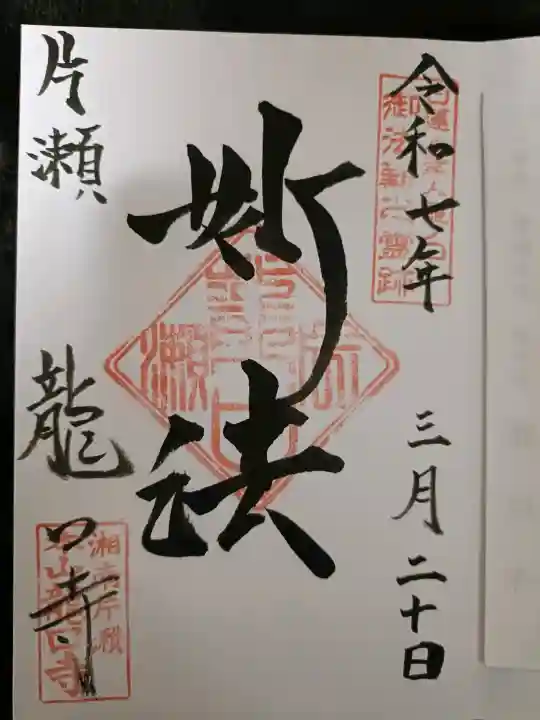 令和七年 三月二十日
妙法
片瀬 龍口寺
湘南片瀬
本山龍口寺